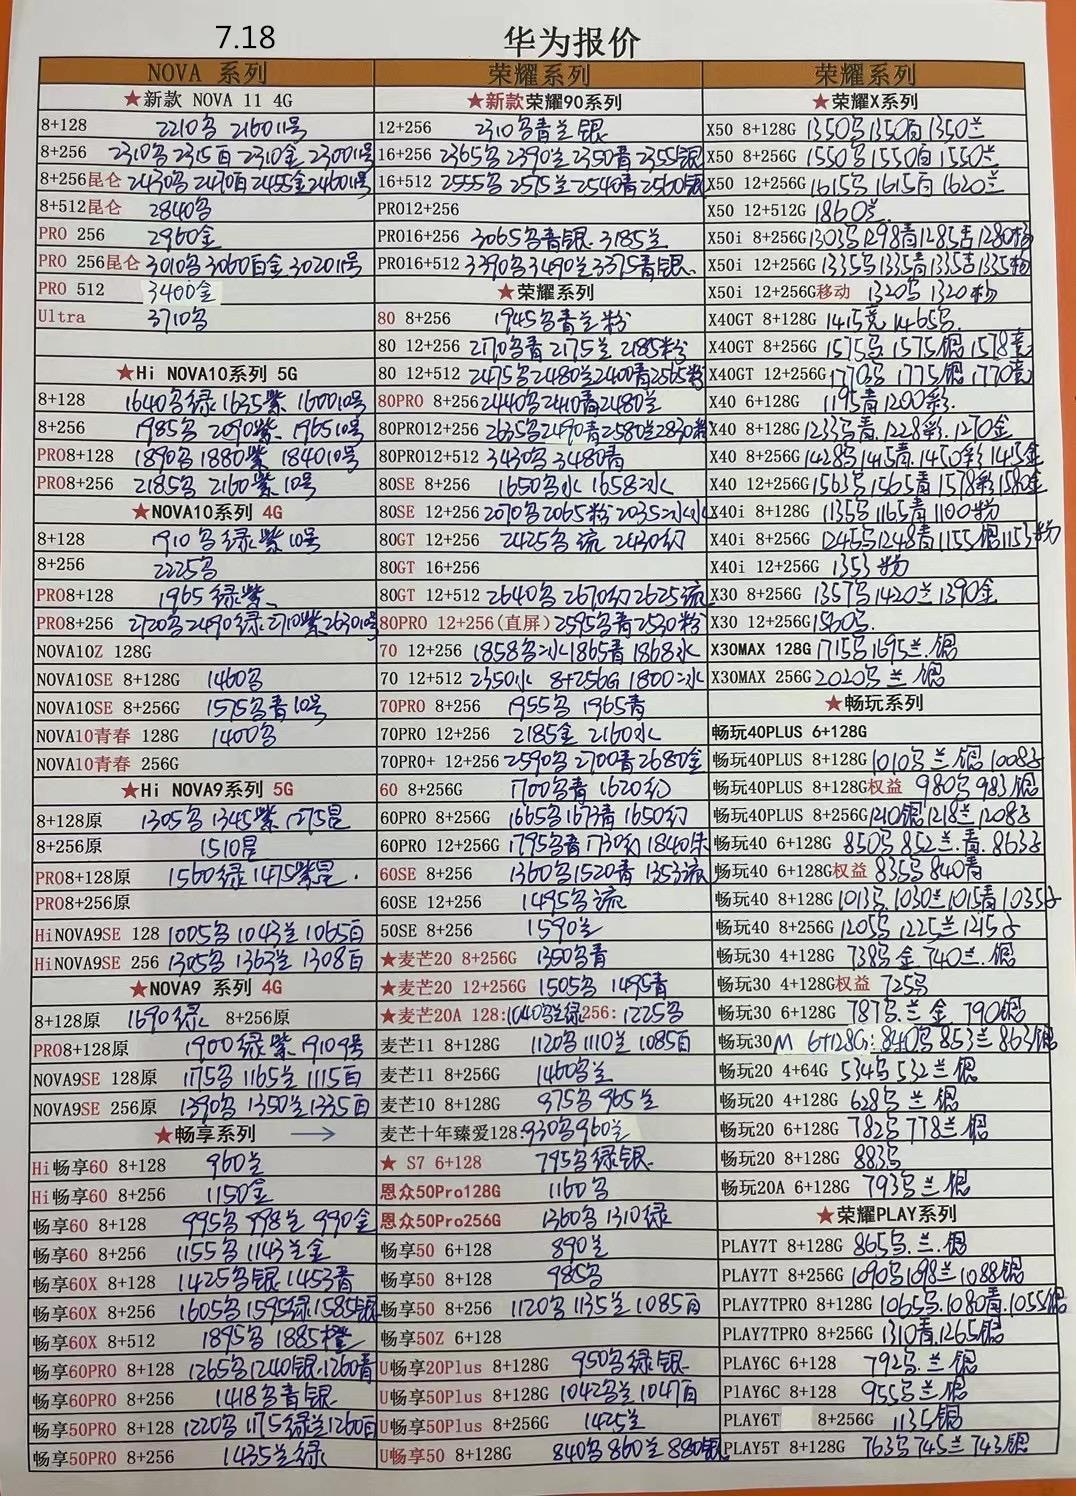 7.18
华为报价
NOVA 系列
★新款 NOVA 11 4G
8+128 2210 21601号
8+256 2310 2315百 2310金 23001号
8+256昆仑 2430 2470百 2455金 24601号
8+512昆仑 2840
PRO 256 2960金
PRO 256昆仑 3010 3060百金 302011号
PRO 512 3400金
Ultra 3710
★Hi NOVA10系列 5G
8+128 1640绿 1635紫 160010号
8+256 1985 2090紫 196510号
PRO8+128 1890 1880紫 184010号
PRO8+256 2185 2160紫10号
★NOVA10系列 4G
8+128 1910绿紫10号
8+256 2225
PRO8+128 1965绿紫
PRO8+256 2720 2490绿 2710紫 263010号
NOVA10Z 128G
NOVA10SE 8+128G 1460
NOVA10SE 8+256G 1575青10号
NOVA10青春 128G 1400
NOVA10青春 256G
★Hi NOVA9系列 5G
8+128原 1305 1345紫 1275昆
8+256原 1510昆
PRO8+128原 1560绿 1475紫昆
PRO8+256原
HiNOVA9SE 128 1005 1043兰 1065百
HiNOVA9SE 256 1305 1363兰 1308百
★NOVA9 系列 4G
8+128原 1690绿 8+256原
PRO8+128原 1900绿紫 19109号
NOVA9SE 128原 1175 1165兰 1115百
NOVA9SE 256原 1390 1350兰 1335百
★畅享系列 →
Hi畅享60 8+128 960兰
Hi畅享60 8+256 1150金
畅享60 8+128 995 998兰 990金
畅享60 8+256 1155 1143兰金
畅享60X 8+128 1425银 1453青
畅享60X 8+256 1605 1595绿 1585银
畅享60X 8+512 1895 1885橙
畅享60PRO 8+128 1265 1240银 1260青
畅享60PRO 8+256 1418青银
畅享50PRO 8+128 1220 1175绿兰 1260百
畅享50PRO 8+256 1435兰绿
荣耀系列
★新款荣耀90系列
12+256 2310青兰银
16+256 2365 2390兰 2350青 2355银
16+512 2555 2575兰 2540青 2560银
PRO12+256
PRO16+256 3065青银 3185兰
PRO16+512 3390 3490兰 3375青银
★荣耀系列
80 8+256 1945青兰粉
80 12+256 2170青 2175兰 2185粉
80 12+512 2475 2480兰 2400青 2565粉
80PRO 8+256 2440 2410青 2480兰
80PRO12+256 2635 2490青 2580兰 2830粉
80PRO12+512 3430 3480青
80SE 8+256 1650水 1658冰
80SE 12+256 2070 2065粉 2035冰
80GT 12+256 2425流 2430幻
80GT 16+256
80GT 12+512 2640 2670幻 2625流
80PRO 12+256(直屏) 2595青 2530粉
70 12+256 1858冰 1865青 1868水
70 12+512 2350水 8+256G 1800冰
70PRO 8+256 1955 1965青
70PRO 12+256 2185金 2160水
70PRO+ 12+256 2590 2700青 2680金
60 8+256G 1700青 1620幻
60PRO 8+256G 1665 1673青 1650幻
60PRO 12+256G 1795青 1730幻 1840朱
60SE 8+256 1360 1520青 1353流
60SE 12+256 1495流
50SE 8+256 1590兰
★麦芒20 8+256G 1350青
★麦芒20 12+256G 1505 1495青
★麦芒20A 128:1040兰绿 256:1225
麦芒11 8+128G 1120 1110兰 1085百
麦芒11 8+256G 1460兰
麦芒10 8+128G 975 965兰
麦芒十年臻爱128:930 960兰
★ S7 6+128 795绿银
恩众50Pro128G 1160
恩众50Pro256G 1360 1310绿
畅享50 6+128 890兰
畅享50 8+128 985
畅享50 8+256 1120 1135兰 1085百
畅享50Z 6+128
U畅享20Plus 8+128G 950绿银
U畅享50Plus 8+128G 1042兰 1047百
U畅享50Plus 8+256G 1425兰
U畅享50 8+128G 840 860兰 880银
荣耀系列
★荣耀X系列
X50 8+128G 1350 1350百 1350兰
X50 8+256G 1550 1550百 1550兰
X50 12+256G 1615 1615百 1620兰
X50 12+512G 1860兰
X50i 8+256G 1303 1298青 1285 1280粉
X50i 12+256G 1335 1335青 1335 1335粉
X50i 12+256G移动 1320 1320粉
X40GT 8+128G 1415竞 1465
X40GT 8+256G 1575 1575银 1578竞
X40GT 12+256G 1770 1775银 1770竞
X40 6+128G 1195青 1200彩
X40 8+128G 1233青 1228彩 1270金
X40 8+256G 1428 1415青 1450彩 1415金
X40 12+256G 1563 1565青 1578彩 1580金
X40i 8+128G 1135 1165青 1100粉
X40i 8+256G 1245 1248青 1155银 1153粉
X40i 12+256G 1353粉
X30 8+256G 1357 1420兰 1390金
X30 12+256G 1560
X30MAX 128G 1715 1695兰银
X30MAX 256G 2020兰银
★畅玩系列
畅玩40PLUS 6+128G
畅玩40PLUS 8+128G 1010兰银 1008子
畅玩40PLUS 8+128G权益 980 983银
畅玩40PLUS 8+256G 1210银 1218兰 1208子
畅玩40 6+128G 850 852兰青 863子
畅玩40 6+128G权益 835 840青
畅玩40 8+128G 1013 1030兰 1015青 1035子
畅玩40 8+256G 1205 1225兰 1215子
畅玩30 4+128G 738金 740兰银
畅玩30 4+128G权益 725
畅玩30 6+128G 787兰金 790银
畅玩30M 6+128G: 840 853兰 863银
畅玩20 4+64G 534 532兰银
畅玩20 4+128G 628兰银
畅玩20 6+128G 782 778兰银
畅玩20 8+128G 883
畅玩20A 6+128G 793兰银
★荣耀PLAY系列
PLAY7T 8+128G 865兰银
PLAY7T 8+256G 1090 1098兰 1088银
PLAY7TPRO 8+128G 1065 1080青 1055银
PLAY7TPRO 8+256G 1310青 1265银
PLAY6C 6+128 792兰银
PlAY6C 8+128 955兰银
PLAY6T 8+256G 1135银
PLAY5T 8+128G 763 745兰 743银